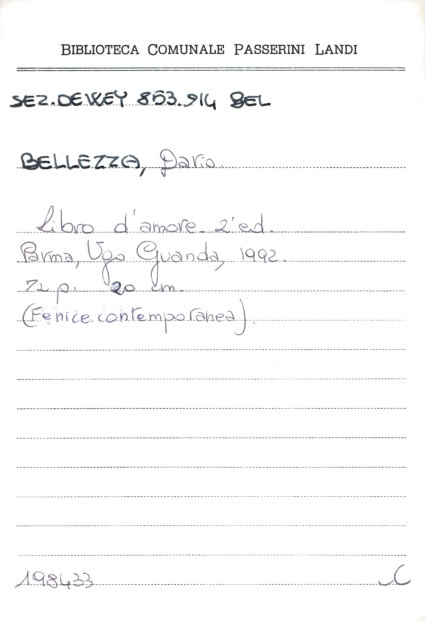 BIBLIOTECA COMUNALE PASSERINI LANDI
SEZ. DEWEY 853.914 BEL
BELLEZZA, Dario.
Libro d'amore. 2ª ed.
Parma, Ugo Guanda, 1992.
72 p. 20 cm.
(Fenice contemporanea).
198433 C